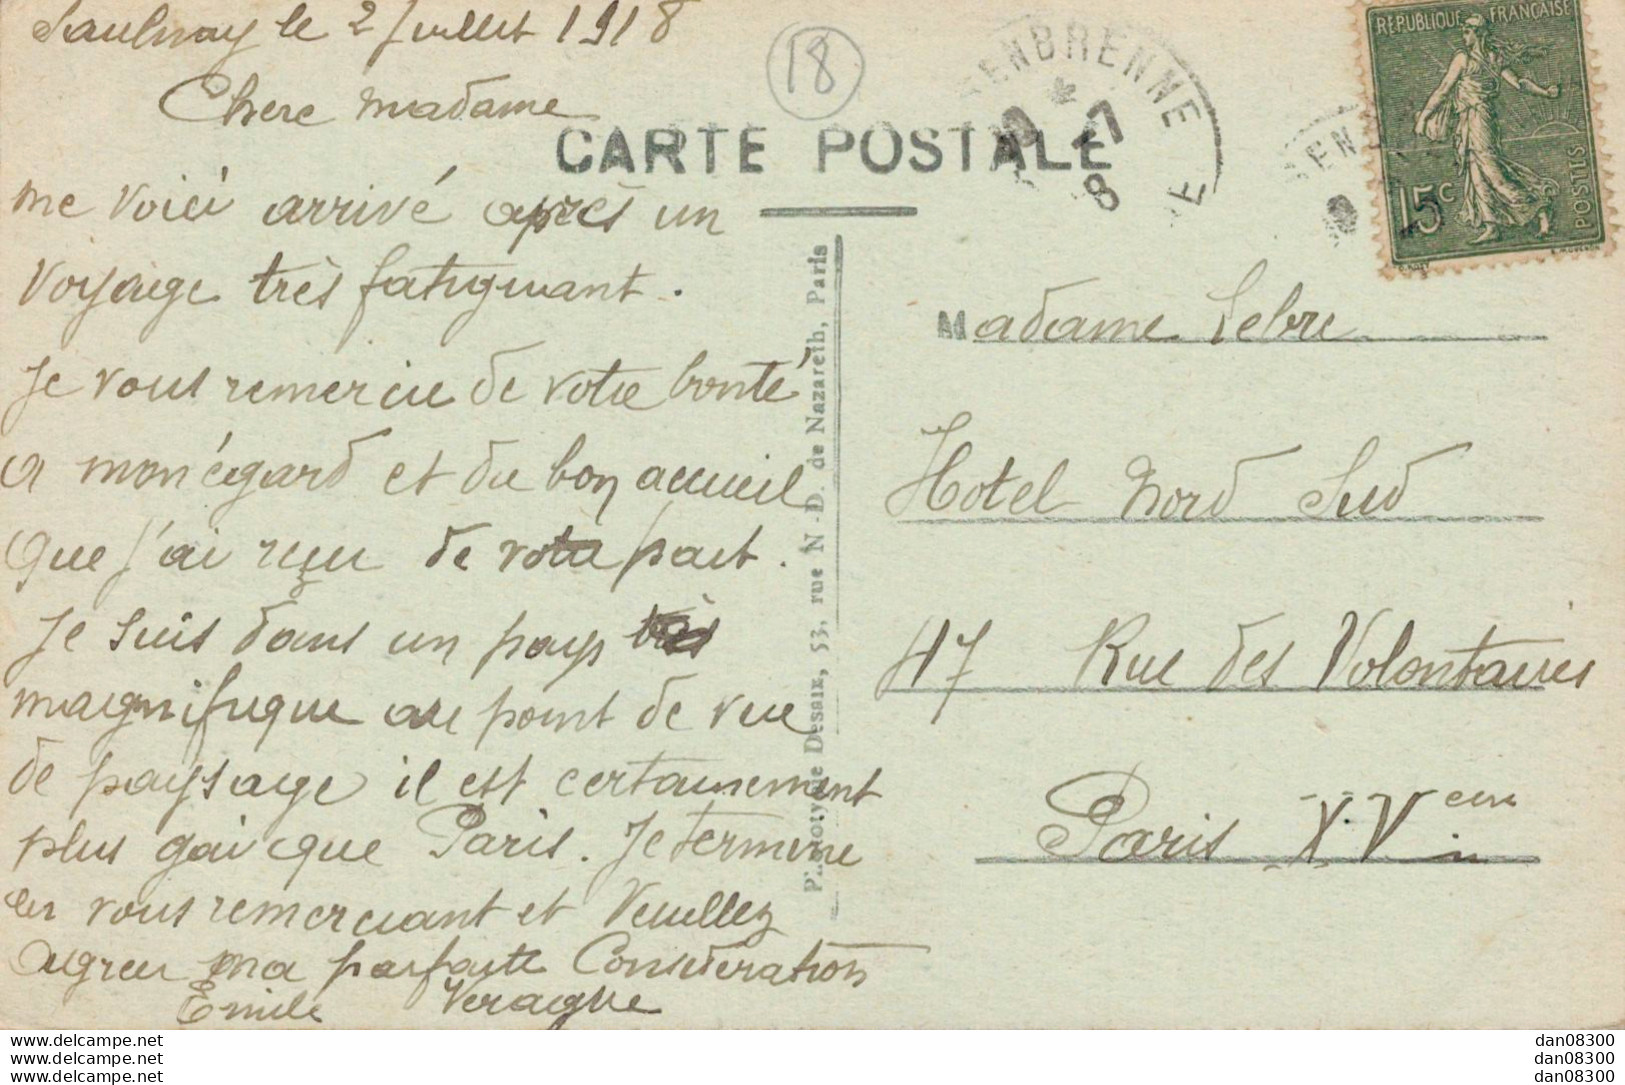 Saulnay le 2 Juillet 1918
Chere madame
18
CARTE POSTALE
me voici arrivé après un
voyage très fatiguant.
Je vous remercie de votre bonté
a mon égard et du bon accueil
que j'ai reçu de votre part.
Je suis dans un pays très
magnifique au point de vue
de paysage il est certainement
plus gai que Paris. Je termine
en vous remerciant et Veuillez
agreer ma parfaite Consideration
Emile Veragüe
Phototypie Desaix, 53, rue N.-D. de Nazareth, Paris
ENBRENNE
* -7
8
REPUBLIQUE FRANÇAISE
15c
POSTES
Madame Lebre
Hotel Nord Sud
47 Rue des Volontaires
Paris XVeme
www.delcampe.net
www.delcampe.net
www.delcampe.net
dan08300
dan08300
dan08300